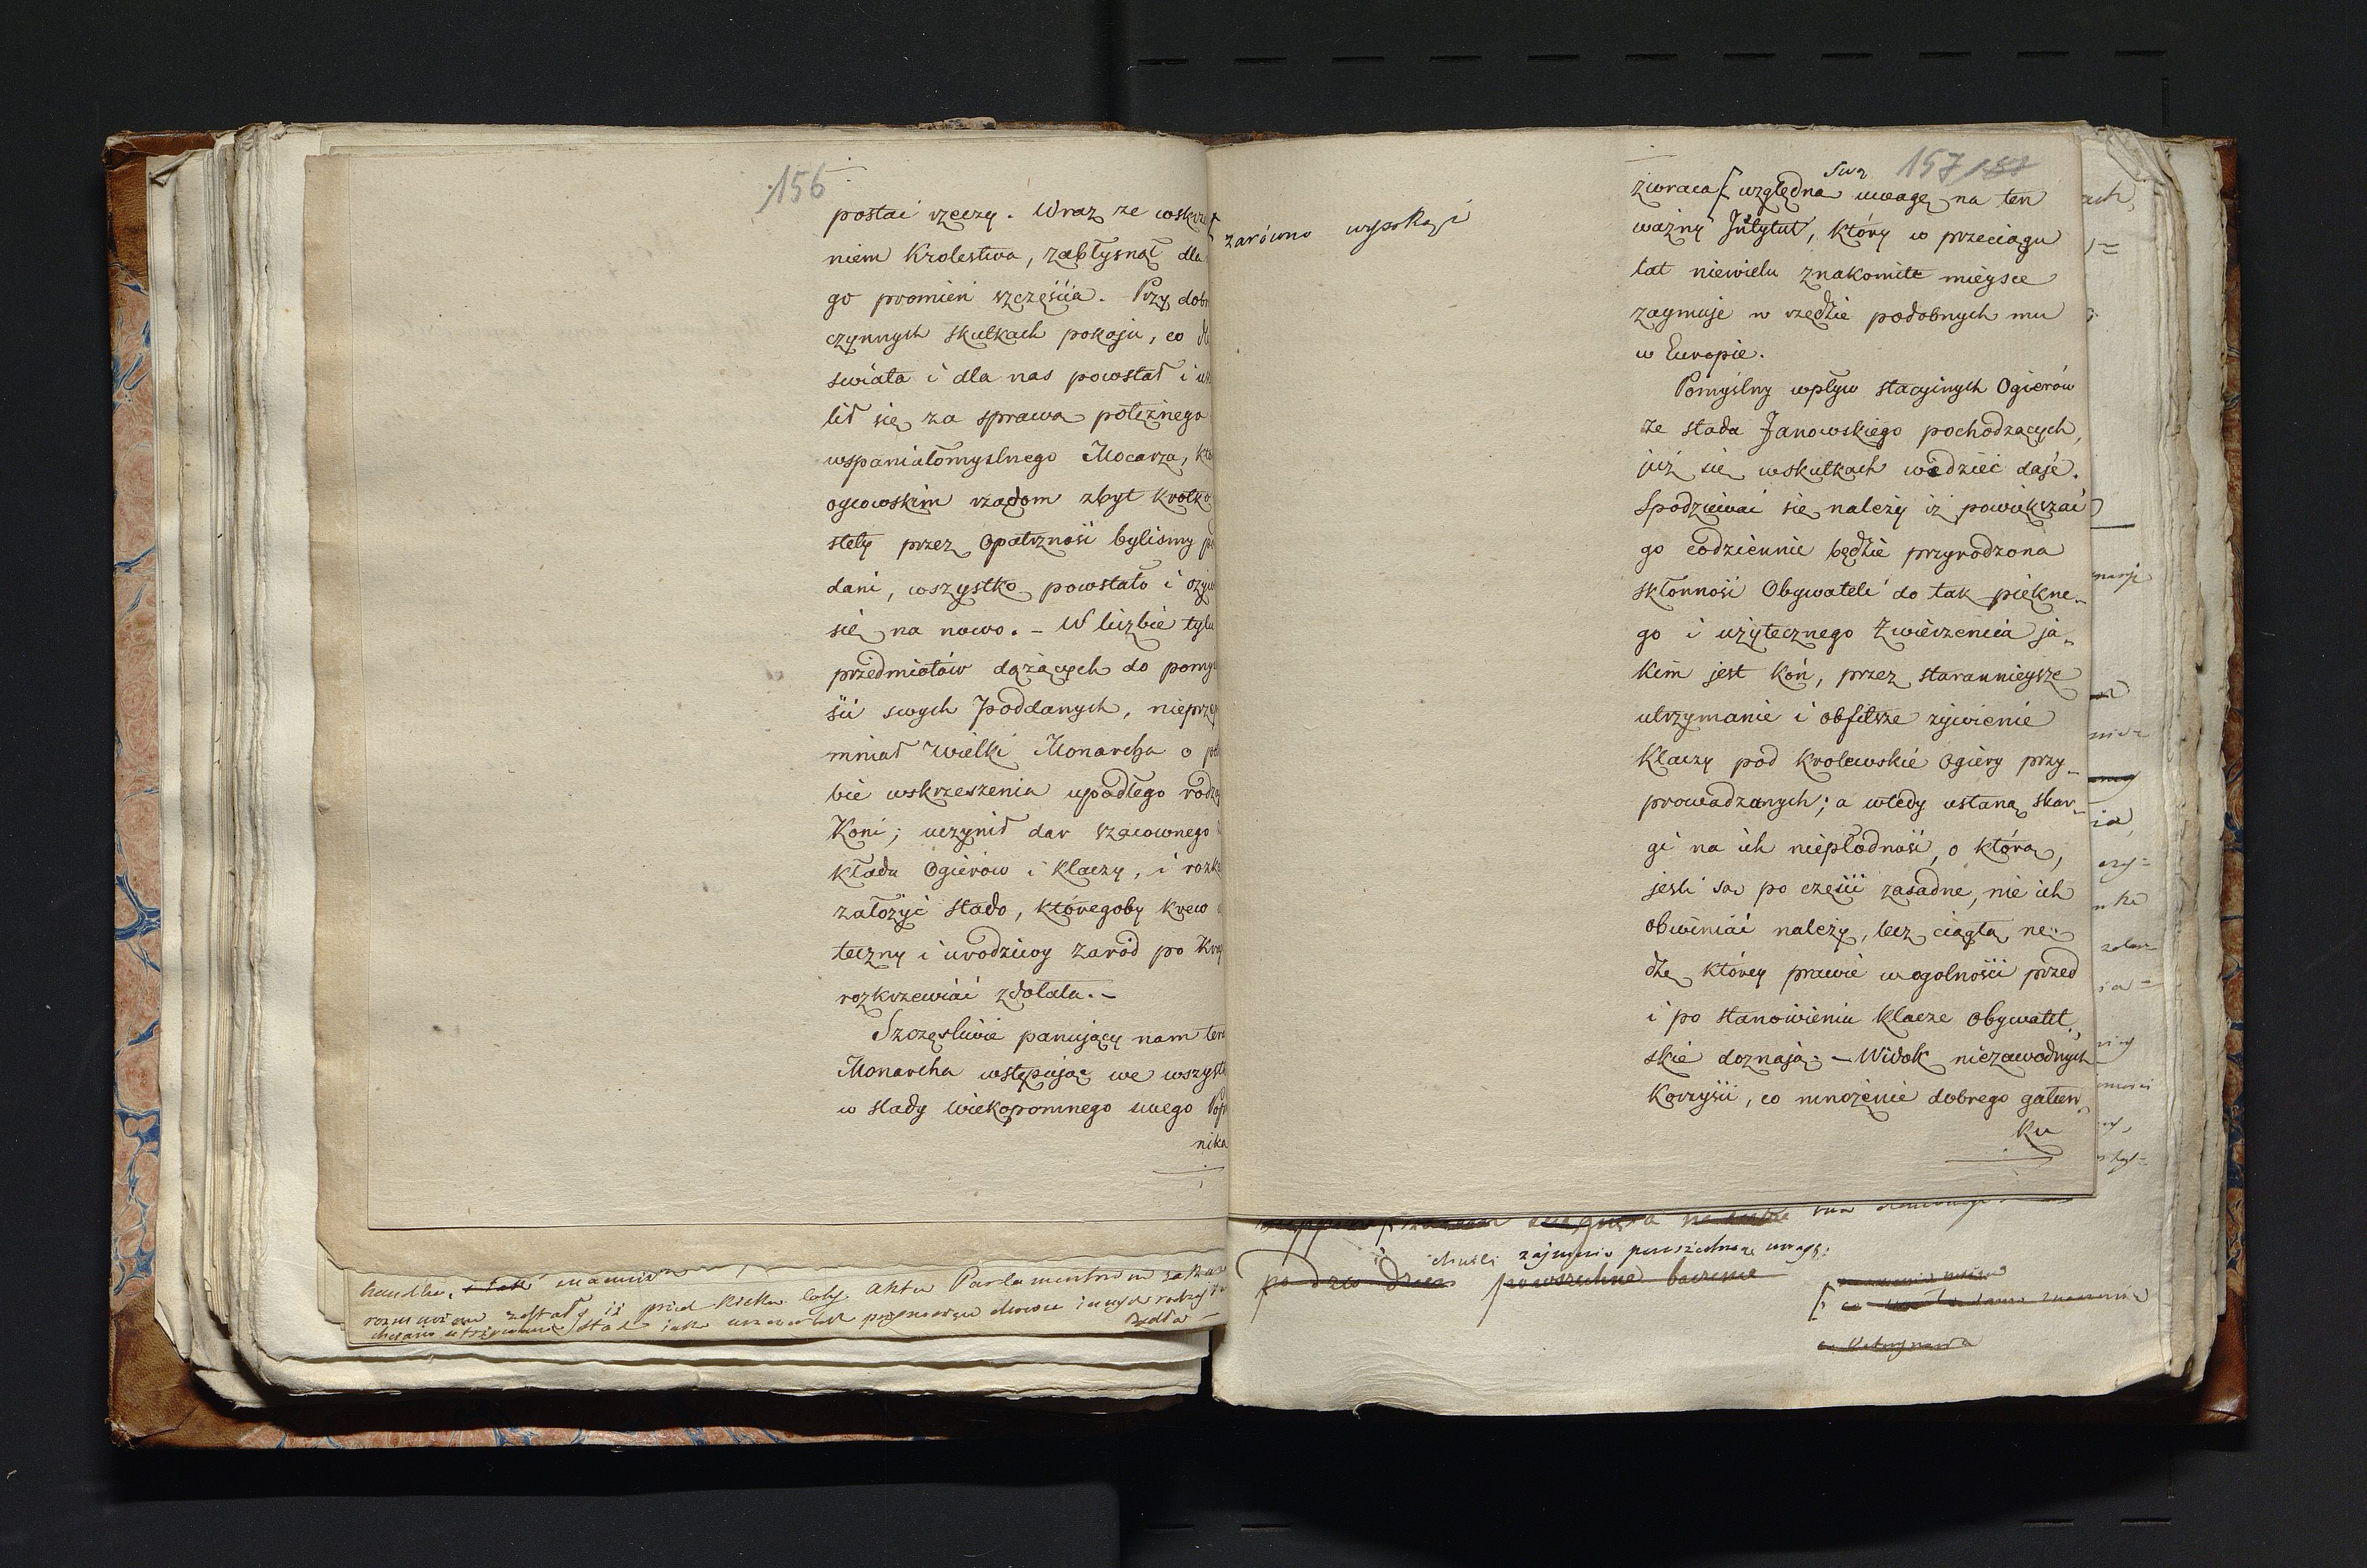 156
postai rzeczy. Wraz ze wskrze
niem Krolestwa, zabłysnął dla
go promień szczęścia. Przy dobr
czynnych skutkach pokoju, co dl
swiata i dla nas powstał i us
lił się za sprawą potężnego
wspaniałomyslnego Mocarza, któ
ogcowskim rządom zbyt krotko
stety przez Opatrzność bylismy po
dani, wszystko powstało i ożyw
się na nowo. – W liczbie tylu
przedmiotów dążących do pomyś
ści swych Poddanych, nieprzep
mniał Wielki Monarcha o po
bie wskrzeszenia upadłego rodza
Koni; uczynił dar szacownego
kładu Ogierów i Klaczy, i rozka
założyć stado, któregoby krew
teczny i urodziwy zaród po Kra
rozkrzewiać zdołała. –
Szczęsliwie panujący nam ter
Monarcha wstępując we wszyst
w slady wiekopomnego swego Pop
nika
handlu,
zostały iż przed kilku laty Aktu Parlamentrem zakaz
zarówno wysoką i
157
swą
zwraca [ względną uwagę na ten
ważny Instytut, który w przeciągu
lat niewielu znakomite mieysce
zaymuje w rzędzie podobnych mu
w Europie.
Pomyślny wpływ stacyinych Ogierów
ze stada Janowskiego pochodzących,
już się w skutkach widzieć daje.
Spodziewać się należy iż powiększać
go codziennie będzie przyrodzona
skłonność Obywateli do tak piękne-
go i użytecznego Zwierzęcia ja-
kim jest koń, przez starannieysze
utrzymanie i obfitsze żywienie
Klaczy pod krolewskie Ogiery przy-
prowadzanych; a wtedy ustaną skar-
gi na ich niepłodność, o którą,
jesli są po części zasadne, nie ich
obwiniać należy, lecz ciągłą nę-
dzę którey prawie w ogolności przed
i po stanowieniu klacze Obywatel-
skie doznają; – Widok niezawodnych
Korzyści, co mnożenie dobrego gatun-
ku
chwili zajmuie powszechną uwagę:
po dziś dzień powszechne baczenie